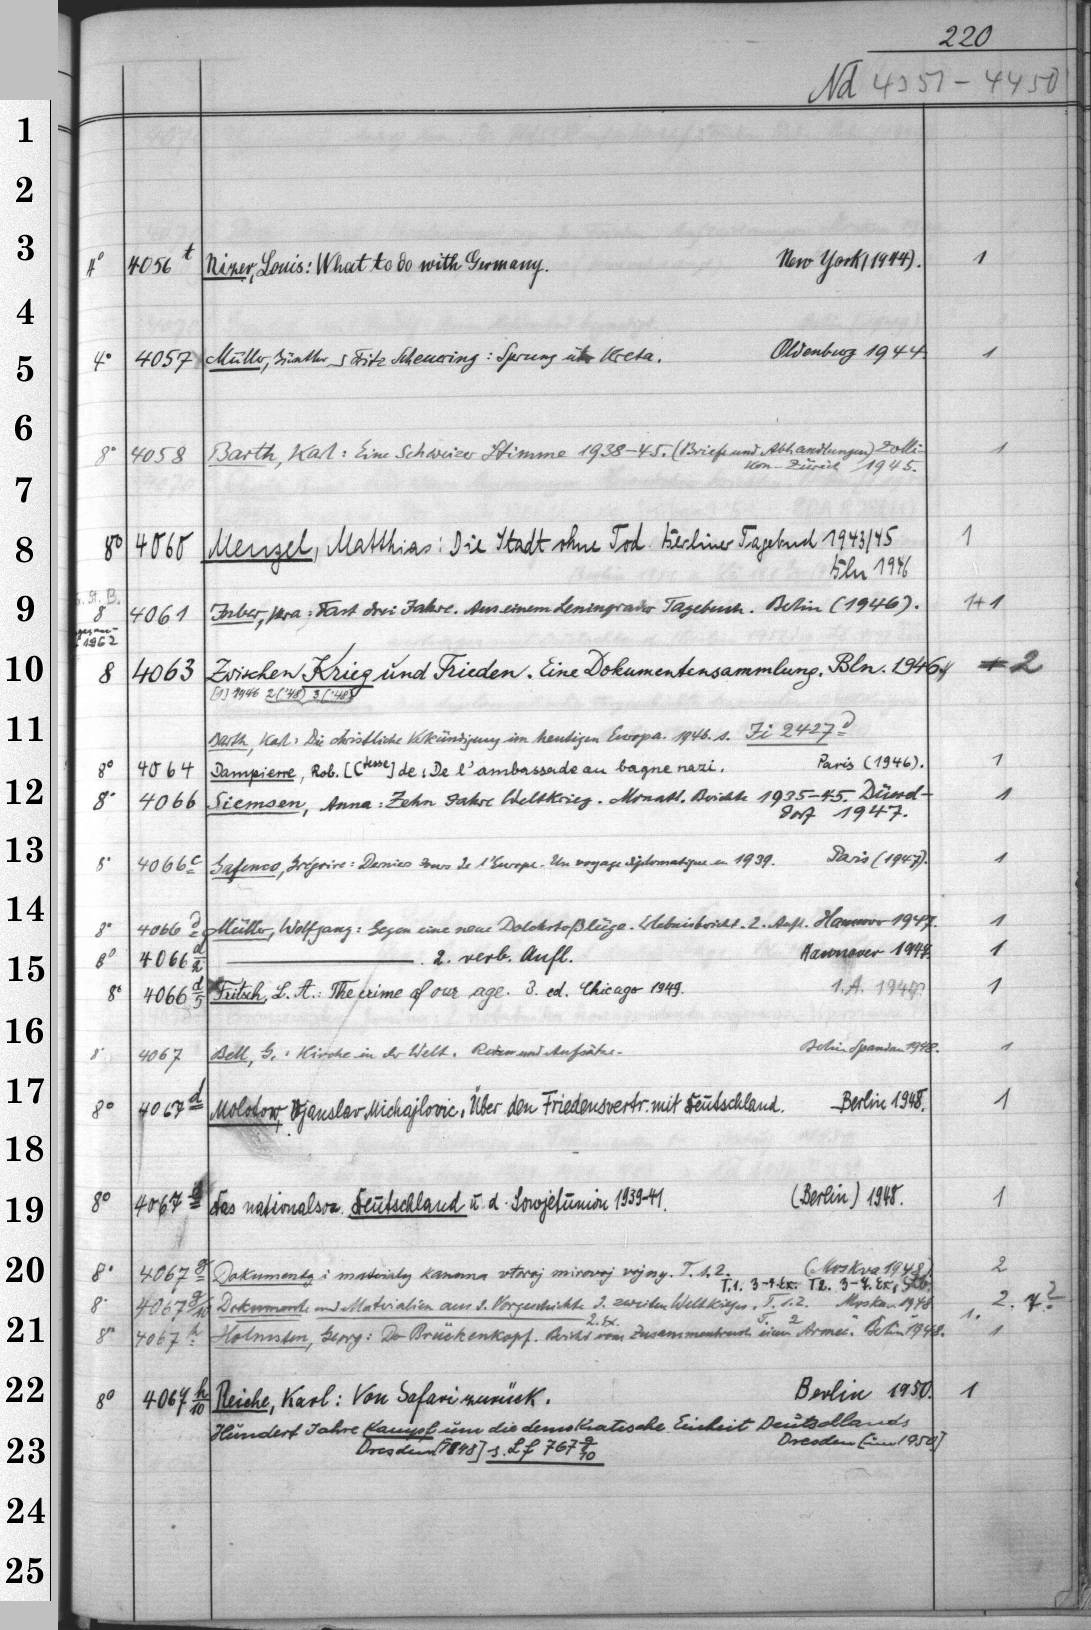 220
Nd 4351 - 4450
1
2
3
4° 4056 t Nizer, Louis: What to do with Germany. New York (1944). 1
4
4° 4057 Müller, Günther u Fritz Scheuering: Sprung über Kreta. Oldenburg 1944 1
5
6
8° 4058 Barth, Karl: Eine Schweizer Stimme 1938-45. (Briefe und Abhandlungen) Zolli-
kon-Zürich 1945. 1
7
8 8° 4060 Menzel, Matthias: Die Stadt ohne Tod. Berliner Tagebuch 1943/45 1
Bln 1946
9 8 4061 Inber, Wera: Fast drei Jahre. Aus einem Leningrader Tagebuch. Berlin (1946). 1+1
1962
10 8 4063 Zwischen Krieg und Frieden. Eine Dokumentensammlung. Bln. 1946 2
[1] 1946 2 ('48) 3 ('48)
11 Barth, Karl: Die christliche Verkündigung im heutigen Europa. 1946. s. Fi 2427 d
8° 4064 Dampierre, Rob. [Ctesse] de: De l'ambassade au bagne nazi. Paris (1946). 1
12 8° 4066 Siemsen, Anna: Zehn Jahre Weltkrieg. Monatl. Berichte 1935-45. Düsseld-
dorf 1947. 1
13 8° 4066 c Gafenco, Grégoire: Derniers jours de l'Europe. Un voyage diplomatique en 1939. Paris (1947). 1
14 8° 4066 d Müller, Wolfgang: Gegen eine neue Dolchstoßlüge. Erlebnisbericht. 2. Aufl. Hannover 1947. 1
15 8° 4066 d/2 ———. 2. verb. Aufl. Hannover 1947. 1
8° 4066 d/5 Fritsch, L. A.: The crime of our age. 3. ed. Chicago 1949. 1.A. 1947 1
16 8° 4067 Bell, G.: Kirche in der Welt. Reden und Aufsätze. Berlin Spandau 1948. 1
17 8° 4067 d Molotow, Vjanslav Michajlovic, Über den Friedensvertr. mit Deutschland. Berlin 1948. 1
18
19 8° 4067 Das nationalsoz. Deutschland u. d. Sowjetunion 1939-41. (Berlin) 1948. 1
20 8° 4067 g Dokumenty i materialy kanuna vtoroj mirovoj vojny. T. 1.2. (Moskva 1948) 2
T.1. 3-4. Ex. T2. 3-4. Ex.
8° 4067 g/10 Dokumente und Materialien aus d. Vorgeschichte d. zweiten Weltkrieges. T. 1.2. Moskau 1948 2.
2. Ex. 1.
21 8° 4067 h Holmsten, Georg: Der Brückenkopf. Bericht vom Zusammenbruch einer Armee. Berlin 1948. 1
22 8° 4067 h/10 Reiche, Karl: Von Safari zurück. Berlin 1950. 1
Hundert Jahre Kampf um die demokratische Einheit Deutschlands
23 Dresden [1848] s. Lf 767 g/10 Dresden [um 1950]
24
25